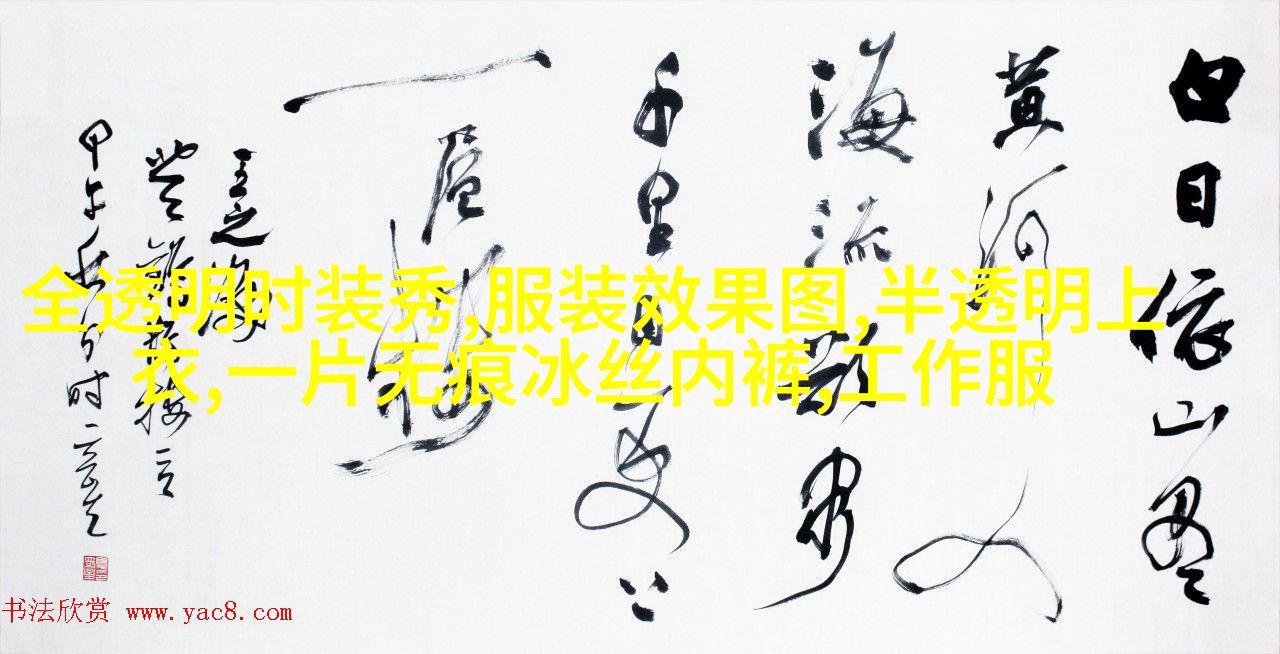 白日依山尽
黄河入
海流欲穷
千里目更上
一层楼
王之涣
登鹳雀楼
甲午秋
全透明时装秀,服装效果图,半透明上
衣,一片无痕冰丝内裤,工作服
书法欣赏 www.yac8.com